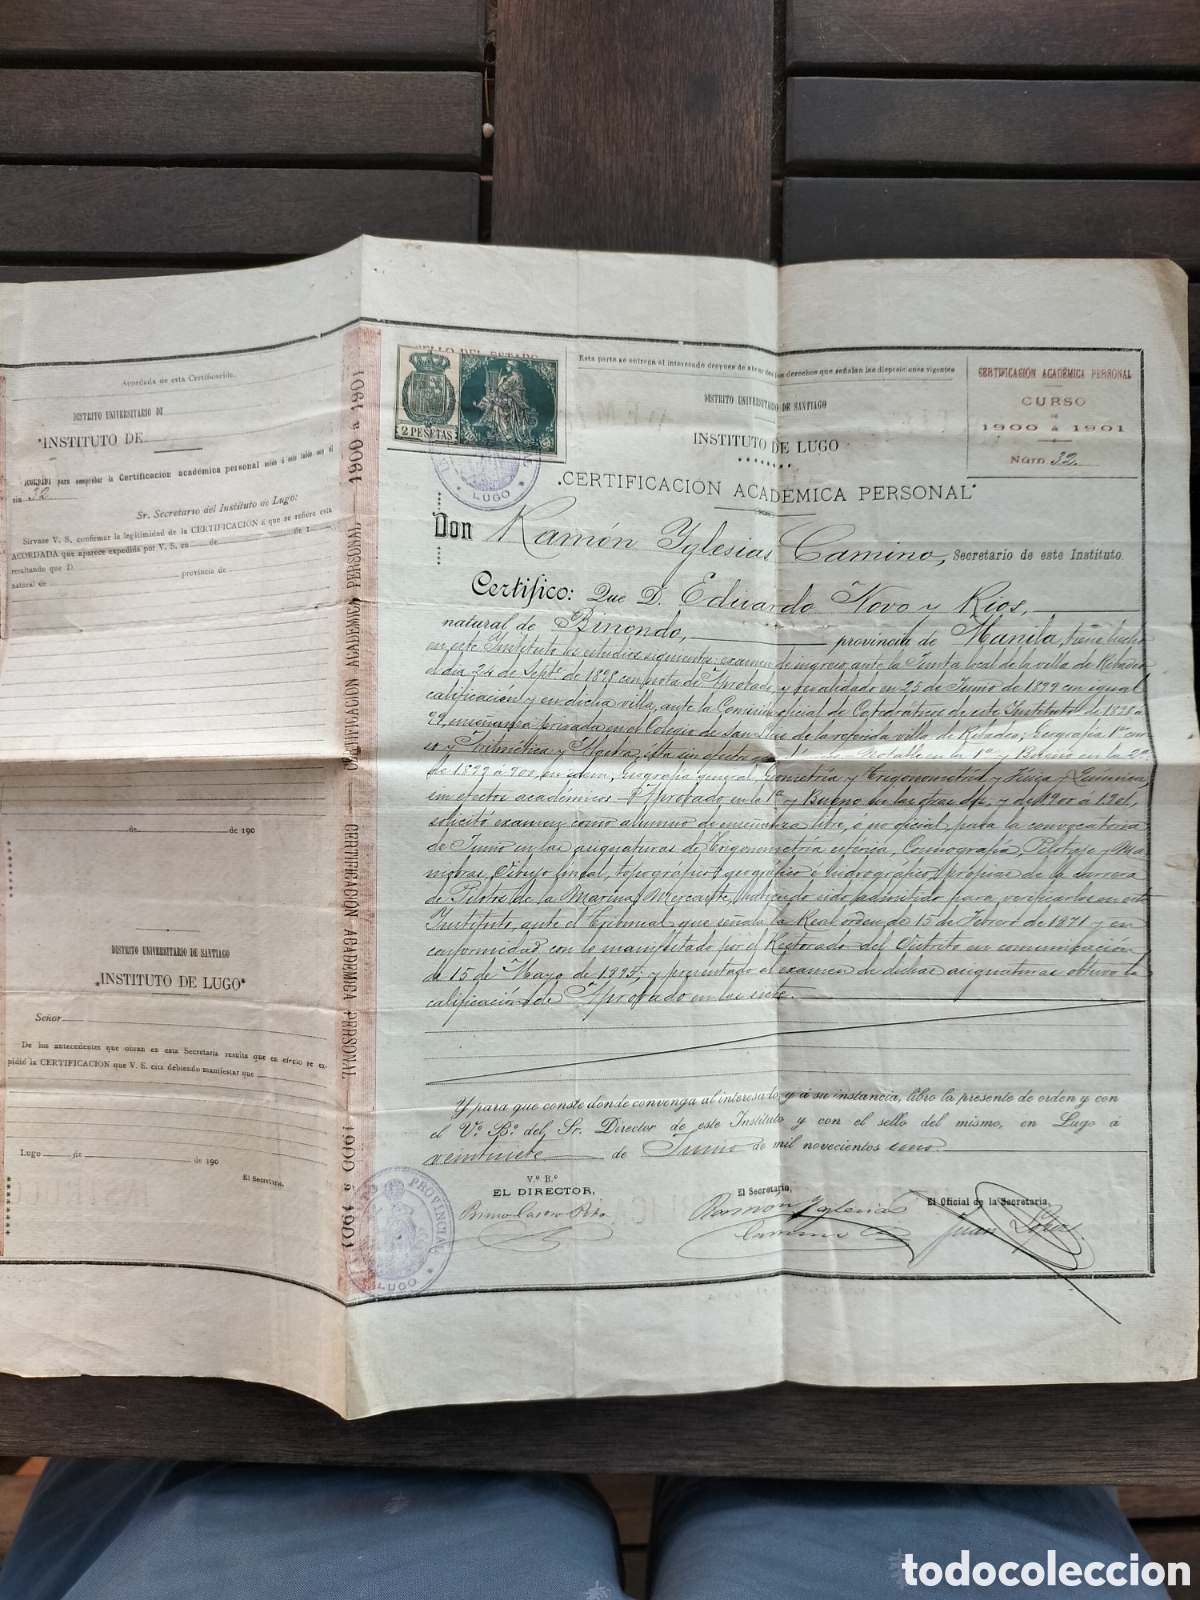 Acordada de esta Certificación.
DISTRITO UNIVERSITARIO DE
INSTITUTO DE
ACORDADA para comprobar la Certificación académica personal unida á este talón con el
núm 32
Sr. Secretario del Instituto de Lugo:
Sírvase V. S. confirmar la legitimidad de la CERTIFICACION á que se refiere esta
ACORDADA que aparece expedida por V. S. en de de 1
resultando que D.
natural de provincia de
de de 190
DISTRITO UNIVERSITARIO DE SANTIAGO
INSTITUTO DE LUGO
Señor
De los antecedentes que obran en esta Secretaría resulta que en efecto se ex-
pidió la CERTIFICACION que V. S. cita debiendo manifestar que
Lugo de de 190
El Secretario,
1900 á 1901
CERTIFICACIÓN ACADÉMICA PERSONAL
CERTIFICACIÓN ACADÉMICA PERSONAL
1900 á 1901
SELLO DEL ESTADO
2 PESETAS
LUGO
Esta parte se entrega al interesado después de abonados los derechos que señalan las disposiciones vigentes
DISTRITO UNIVERSITARIO DE SANTIAGO
INSTITUTO DE LUGO
CERTIFICACIÓN ACADÉMICA PERSONAL
CERTIFICACIÓN ACADÉMICA PERSONAL
CURSO
DE
1900 á 1901
Núm. 32
Don Ramón Yglesias Camino, Secretario de este Instituto.
Certifico: Que D. Eduardo Novo y Rios,
natural de Binondo, provincia de Manila, tiene hechos
en este Instituto los estudios siguientes: examen de ingreso ante la Junta local de la villa de Ribadeo
el dia 24 de Septe de 1898 con nota de Aprobado, y revalidado en 25 de Junio de 1899 con igual
calificación y en dicha villa, ante la Comisión oficial de Catedráticos de este Instituto de 1898 á
99, enseñanza privada en el Colegio de San Luis de la referida villa de Ribadeo; Geografía
y Aritmética y Algebra, ésta sin efectos Notable en la 1ª y Bueno en la 2ª
de 1899 á 900, en idem, Geografía general, Geometría y Trigonometría y Física y Química
sin efectos académicos Aprobado en la 1ª y Bueno en las otras dos, y de 1900 á 1901,
solicitó examen como alumno de enseñanza libre, ó no oficial, para la convocatoria
de Junio en las asignaturas de Trigonometría esférica, Cosmografía, Pilotaje y Ma-
niobras, Dibujo lineal, topográfico, geográfico é hidrográfico, propias de la carrera
de Pilotos de la Marina Mercante, habiendo sido admitido para verificarlos en este
Instituto, ante el Tribunal que señala la Real orden de 15 de Febrero de 1871 y en
conformidad con lo manifestado por el Rectorado del Distrito en comunicación
de 15 de Mayo de 1895; y presentado al examen de dichas asignaturas obtuvo la
calificación de Aprobado en las siete.
Y para que conste donde convenga al interesado, y á su instancia, libro la presente de orden y con
el V.º B.º del Sr. Director de este Instituto y con el sello del mismo, en Lugo á
veintisiete de Junio de mil novecientos uno.
V.º B.º
EL DIRECTOR,
El Secretario,
El Oficial de la Secretaría,
Ramón Yglesias
Camino
Juan
PROVINCIAL
LUGO
todocoleccion